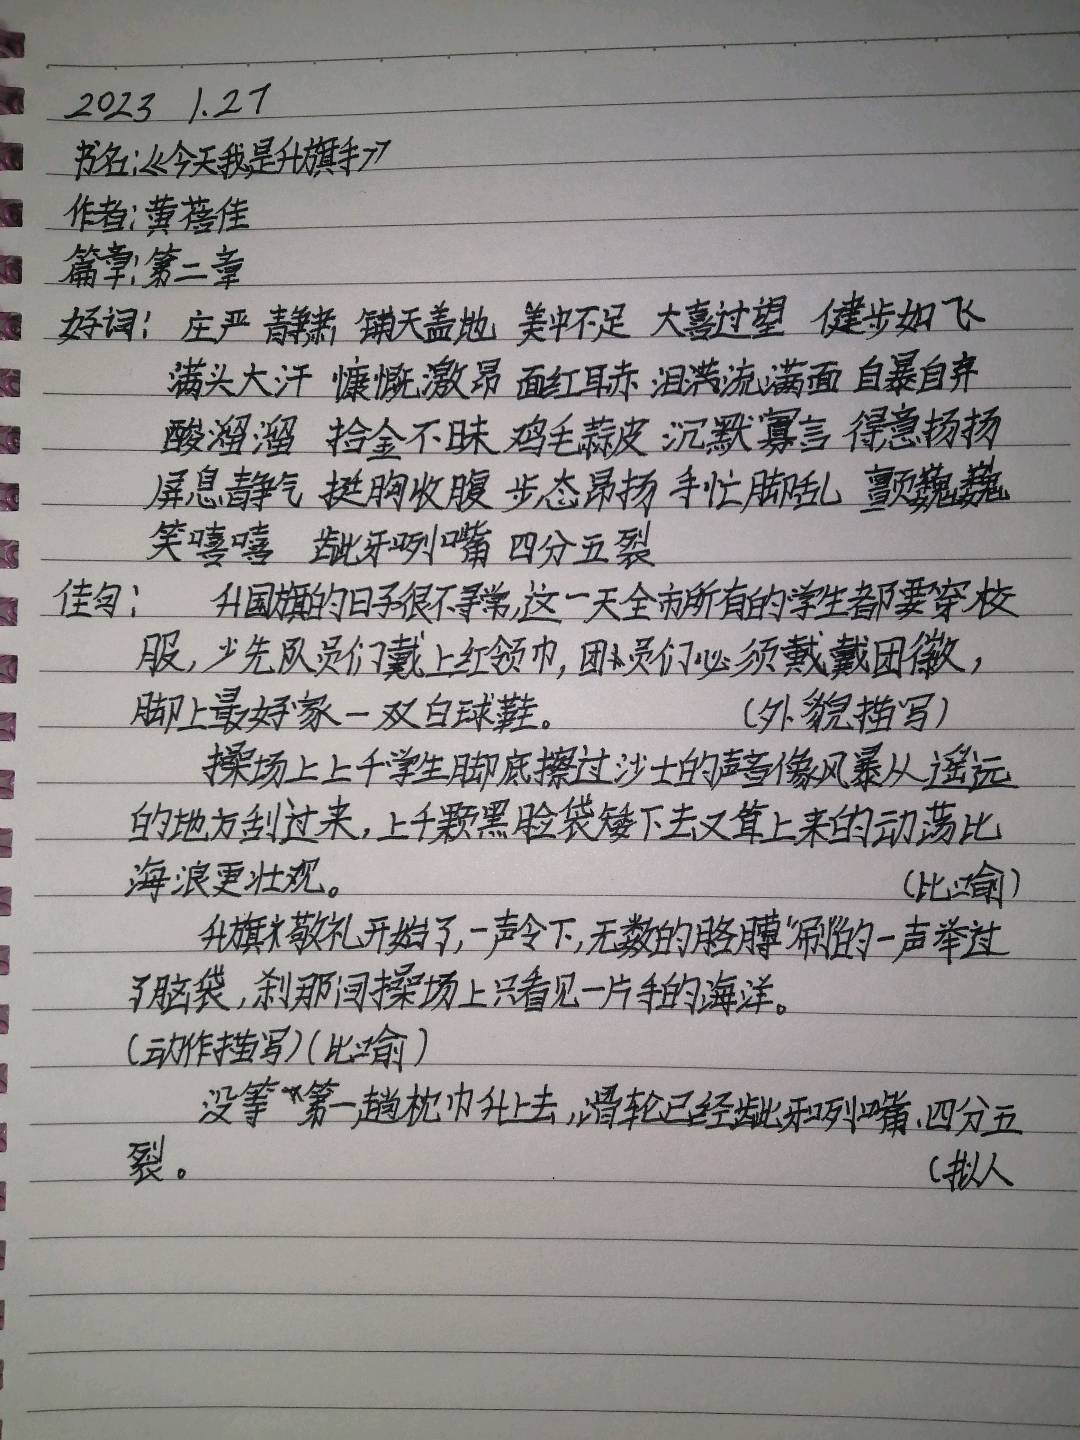 2023 1.27
书名:《今天我是升旗手》
作者:黄蓓佳
篇章:第二章
好词: 庄严 静肃 铺天盖地 美中不足 大喜过望 健步如飞
满头大汗 慷慨激昂 面红耳赤 泪流满面 自暴自弃
酸溜溜 拾金不昧 鸡毛蒜皮 沉默寡言 得意扬扬
屏息静气 挺胸收腹 步态昂扬 手忙脚乱 颤巍巍
笑嘻嘻 龇牙咧嘴 四分五裂
佳句: 升国旗的日子很不寻常,这一天全市所有的学生都要穿校
服,少先队员们戴上红领巾,团员们必须戴戴团徽,
脚上最好家一双白球鞋。 (外貌描写)
操场上上千学生脚底擦过沙土的声音像风暴从遥远
的地方刮过来,上千颗黑脸袋矮下去又耸上来的动荡比
海浪更壮观。 (比喻)
升旗敬礼开始了,一声令下,无数的胳膊“刷”的一声举过
了脑袋,刹那间操场上只看见一片手的海洋。
(动作描写)(比喻)
没等第一趟枕巾升上去,滑轮已经龇牙咧嘴、四分五
裂。 (拟人